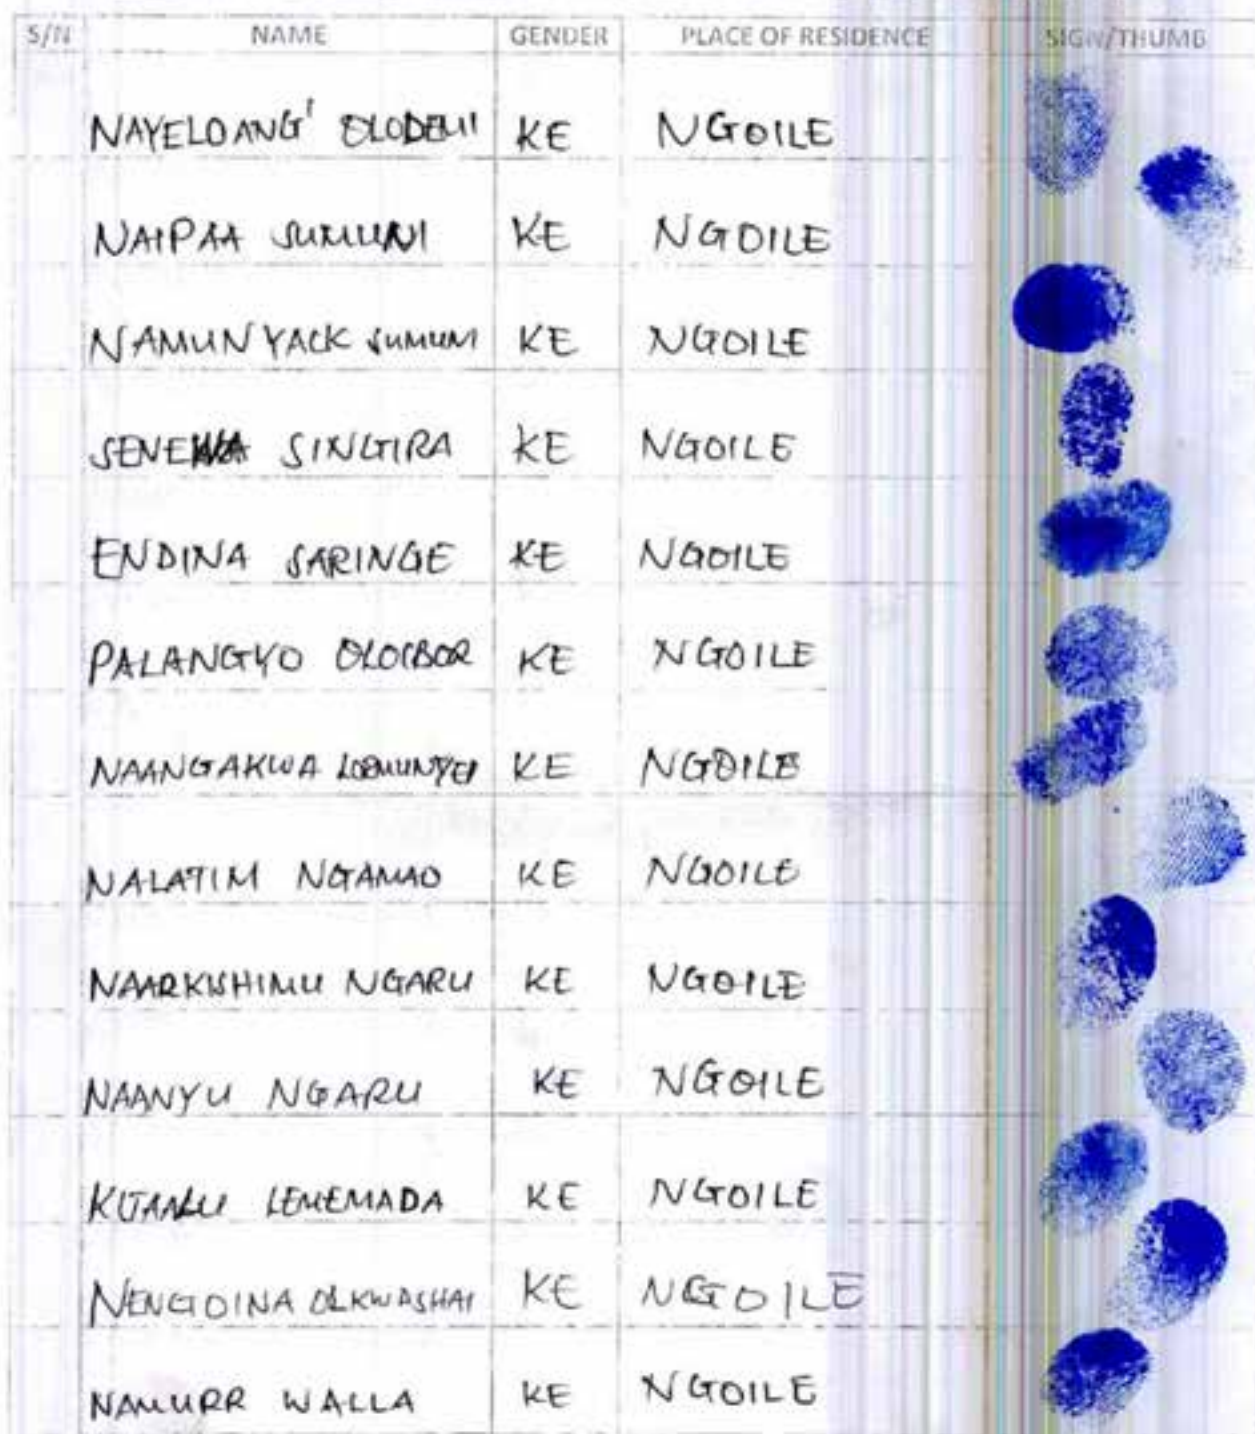 S/N NAME GENDER PLACE OF RESIDENCE SIGN/THUMB
NAYELOANG' OLODEMI KE NGOILE
NAIPAA SUMUNI KE NGOILE
NAMUNYACK SUMUNI KE NGOILE
SENEWA SINGIRA KE NGOILE
ENDINA SARINGE KE NGOILE
PALANGYO OLOIBOR KE NGOILE
NAANGAKWA KE NGOILE
NALATIM NGAMAO KE NGOILE
NAARKISHIMU NGARU KE NGOILE
NAANYU NGARU KE NGOILE
LEMEMADA KE NGOILE
NENGOINA OLKWASHAI KE NGOILE
NAMURR WALLA KE NGOILE